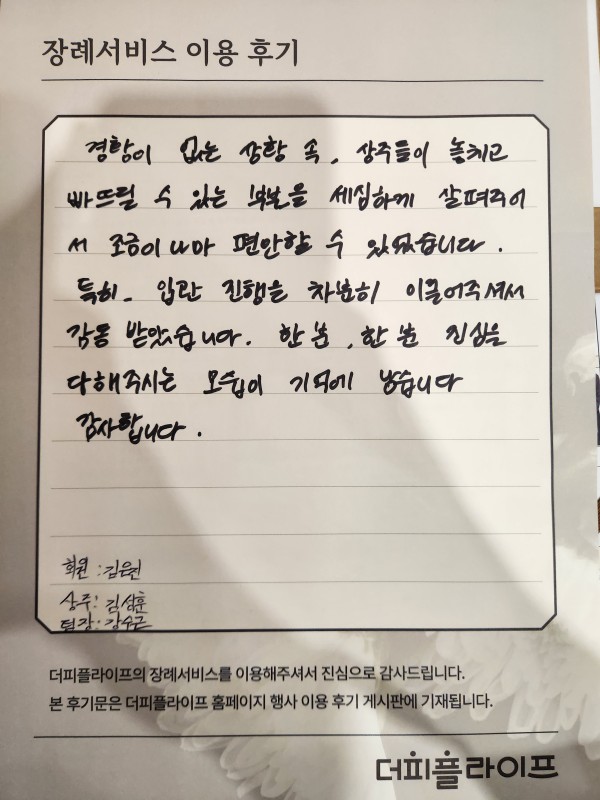 장례서비스 이용 후기
경황이 없는 상황 속, 상주들이 놓치고
빠뜨릴 수 있는 부분을 세심하게 살펴주어
서 조금이나마 편안할 수 있었습니다.
특히, 입관 진행을 차분히 이끌어주셔서
감동 받았습니다. 한 분, 한 분 진심을
다해주시는 모습이 기억에 남습니다
감사합니다.
회원 : 김은진
상주 : 김성훈
팀장 : 강수근
더피플라이프의 장례서비스를 이용해주셔서 진심으로 감사드립니다.
본 후기문은 더피플라이프 홈페이지 행사 이용 후기 게시판에 기재됩니다.
더피플라이프